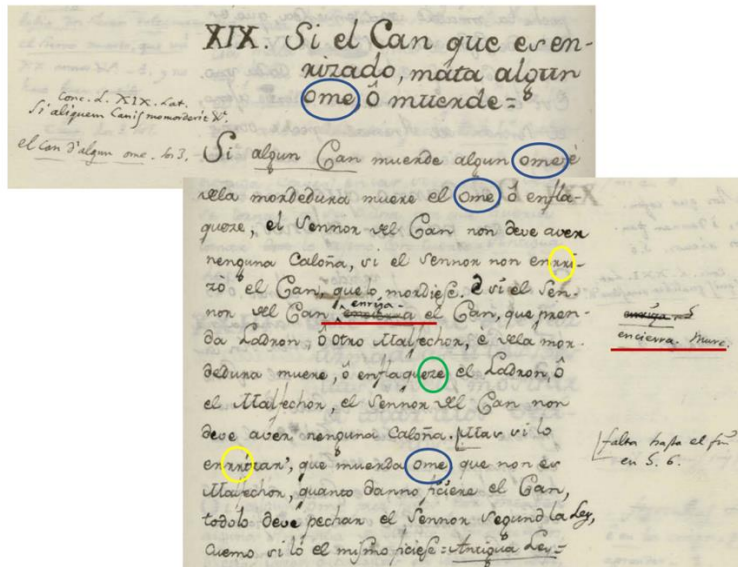 XIX. Si el Can que es en-
rizado, máta algun
ome, ô muerde =
Conc. L. XIX. Lat.
Si aliquem Canis momorderit &.
el Can d'algun ome. los 3.
Si algun Can muerde algun ome é
dela mordedura muere el ome ô enfla-
quere, el Sennor del Can non deve aver
nenguna Caloña, si el Sennor non enrri-
zó el Can, que lo mordiese. E si el Sen-
nor del Can enriza el Can, que pren-
da Ladron, ô otro Malfechor, é dela mor-
dedura muere, ô enflaquere el Ladron, ô
el Malfechor, el Sennor del Can non
deve aver nenguna Caloña. Mas si lo
enrrizar', que muerda ome que non es
Malfechor, quanto danno ficiere el Can,
todolo deve pechar el Sennor segund la Ley,
cuemo si ló el mismo ficiese = Antigua Ley =
encierra. Murc.
falta hasta el fin
en 5. 6.